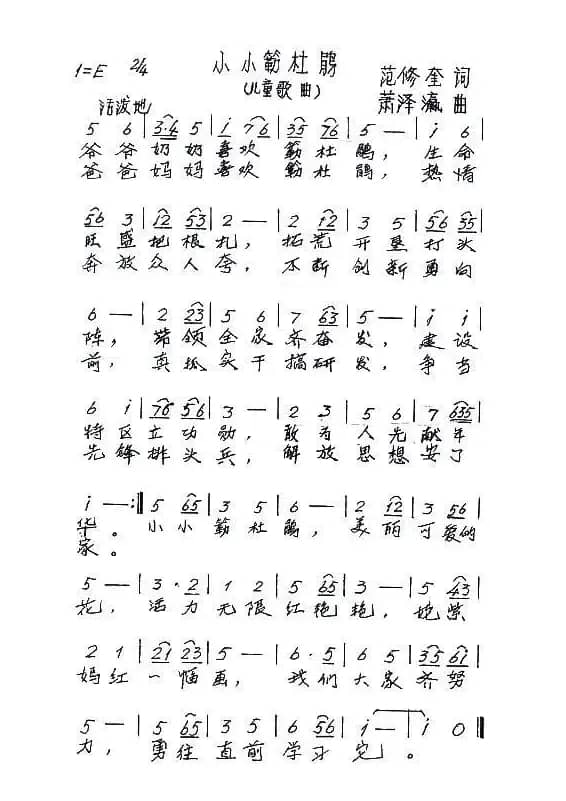 小小簕杜鹃
(儿童歌曲)
1=E 2/4
范修奎 词
活泼地
萧泽瀛 曲
5 6 | 5·4 5 | i 76 | 35 76 | 5 — | i 6
爷爷奶奶喜欢 簕杜鹃, 生命
爸爸妈妈喜欢 簕杜鹃, 热情
56 3 | 12 53 | 2 — | 2 12 | 3 5 | 56 35
旺盛地根扎, 拓荒开垦打头
奔放众人夸, 不断创新勇向
6 — | 2 23 | 5 6 | 7 63 | 5 — | i i
阵, 带领全家齐奋发, 建设
前, 真抓实干搞研发, 争当
6 i | 76 56 | 3 — | 2 3 | 5 6 | 7 635
特区立功勋, 敢为人先献年
先锋排头兵, 解放思想安了
i — :| 5 65 | 3 5 | 6 — | 2 12 | 3 56
华。 小小簕杜鹃, 美丽可爱的
家。
5 — | 3 · 2 | 1 2 | 5 65 | 3 — | 5 43
花, 活力无限红艳艳, 姹紫
2 1 | 21 23 | 5 — | 6 · 5 | 6 5 | 35 61
嫣红一幅画, 我们大家齐努
5 — | 5 65 | 3 5 | 6 56 | i — | i 0 ‖
力, 勇往直前学习它。